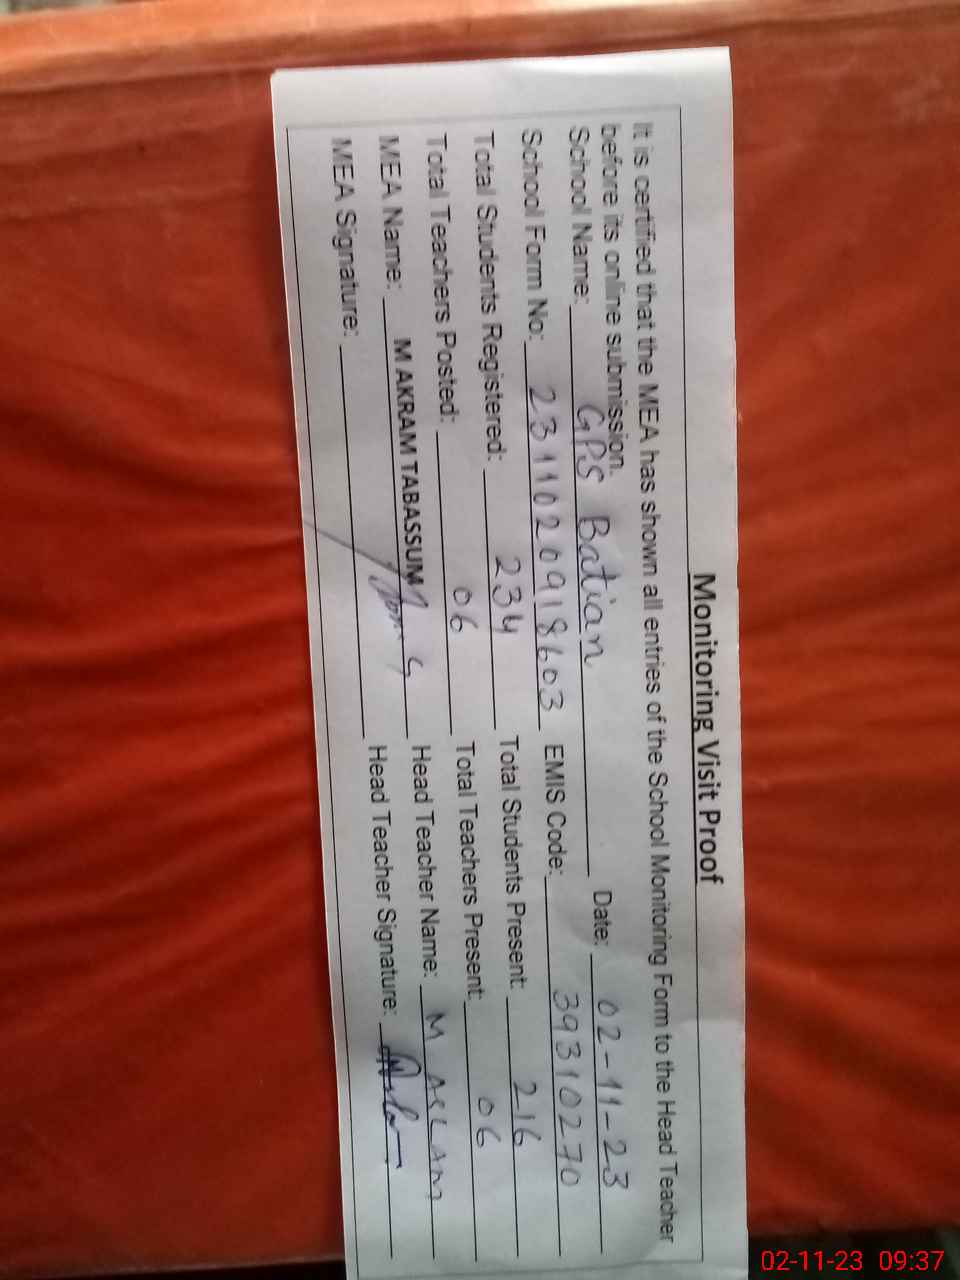 Monitoring Visit Proof
It is certified that the MEA has shown all entries of the School Monitoring Form to the Head Teacher
before its online submission.
School Name: GPS Batian Date: 02-11-23
School Form No: 2311020918603 EMIS Code: 39310270
Total Students Registered: 234 Total Students Present: 216
Total Teachers Posted: 06 Total Teachers Present: 06
MEA Name: M AKRAM TABASSUM Head Teacher Name: M ASLAM
MEA Signature: Head Teacher Signature:
02-11-23 09:37